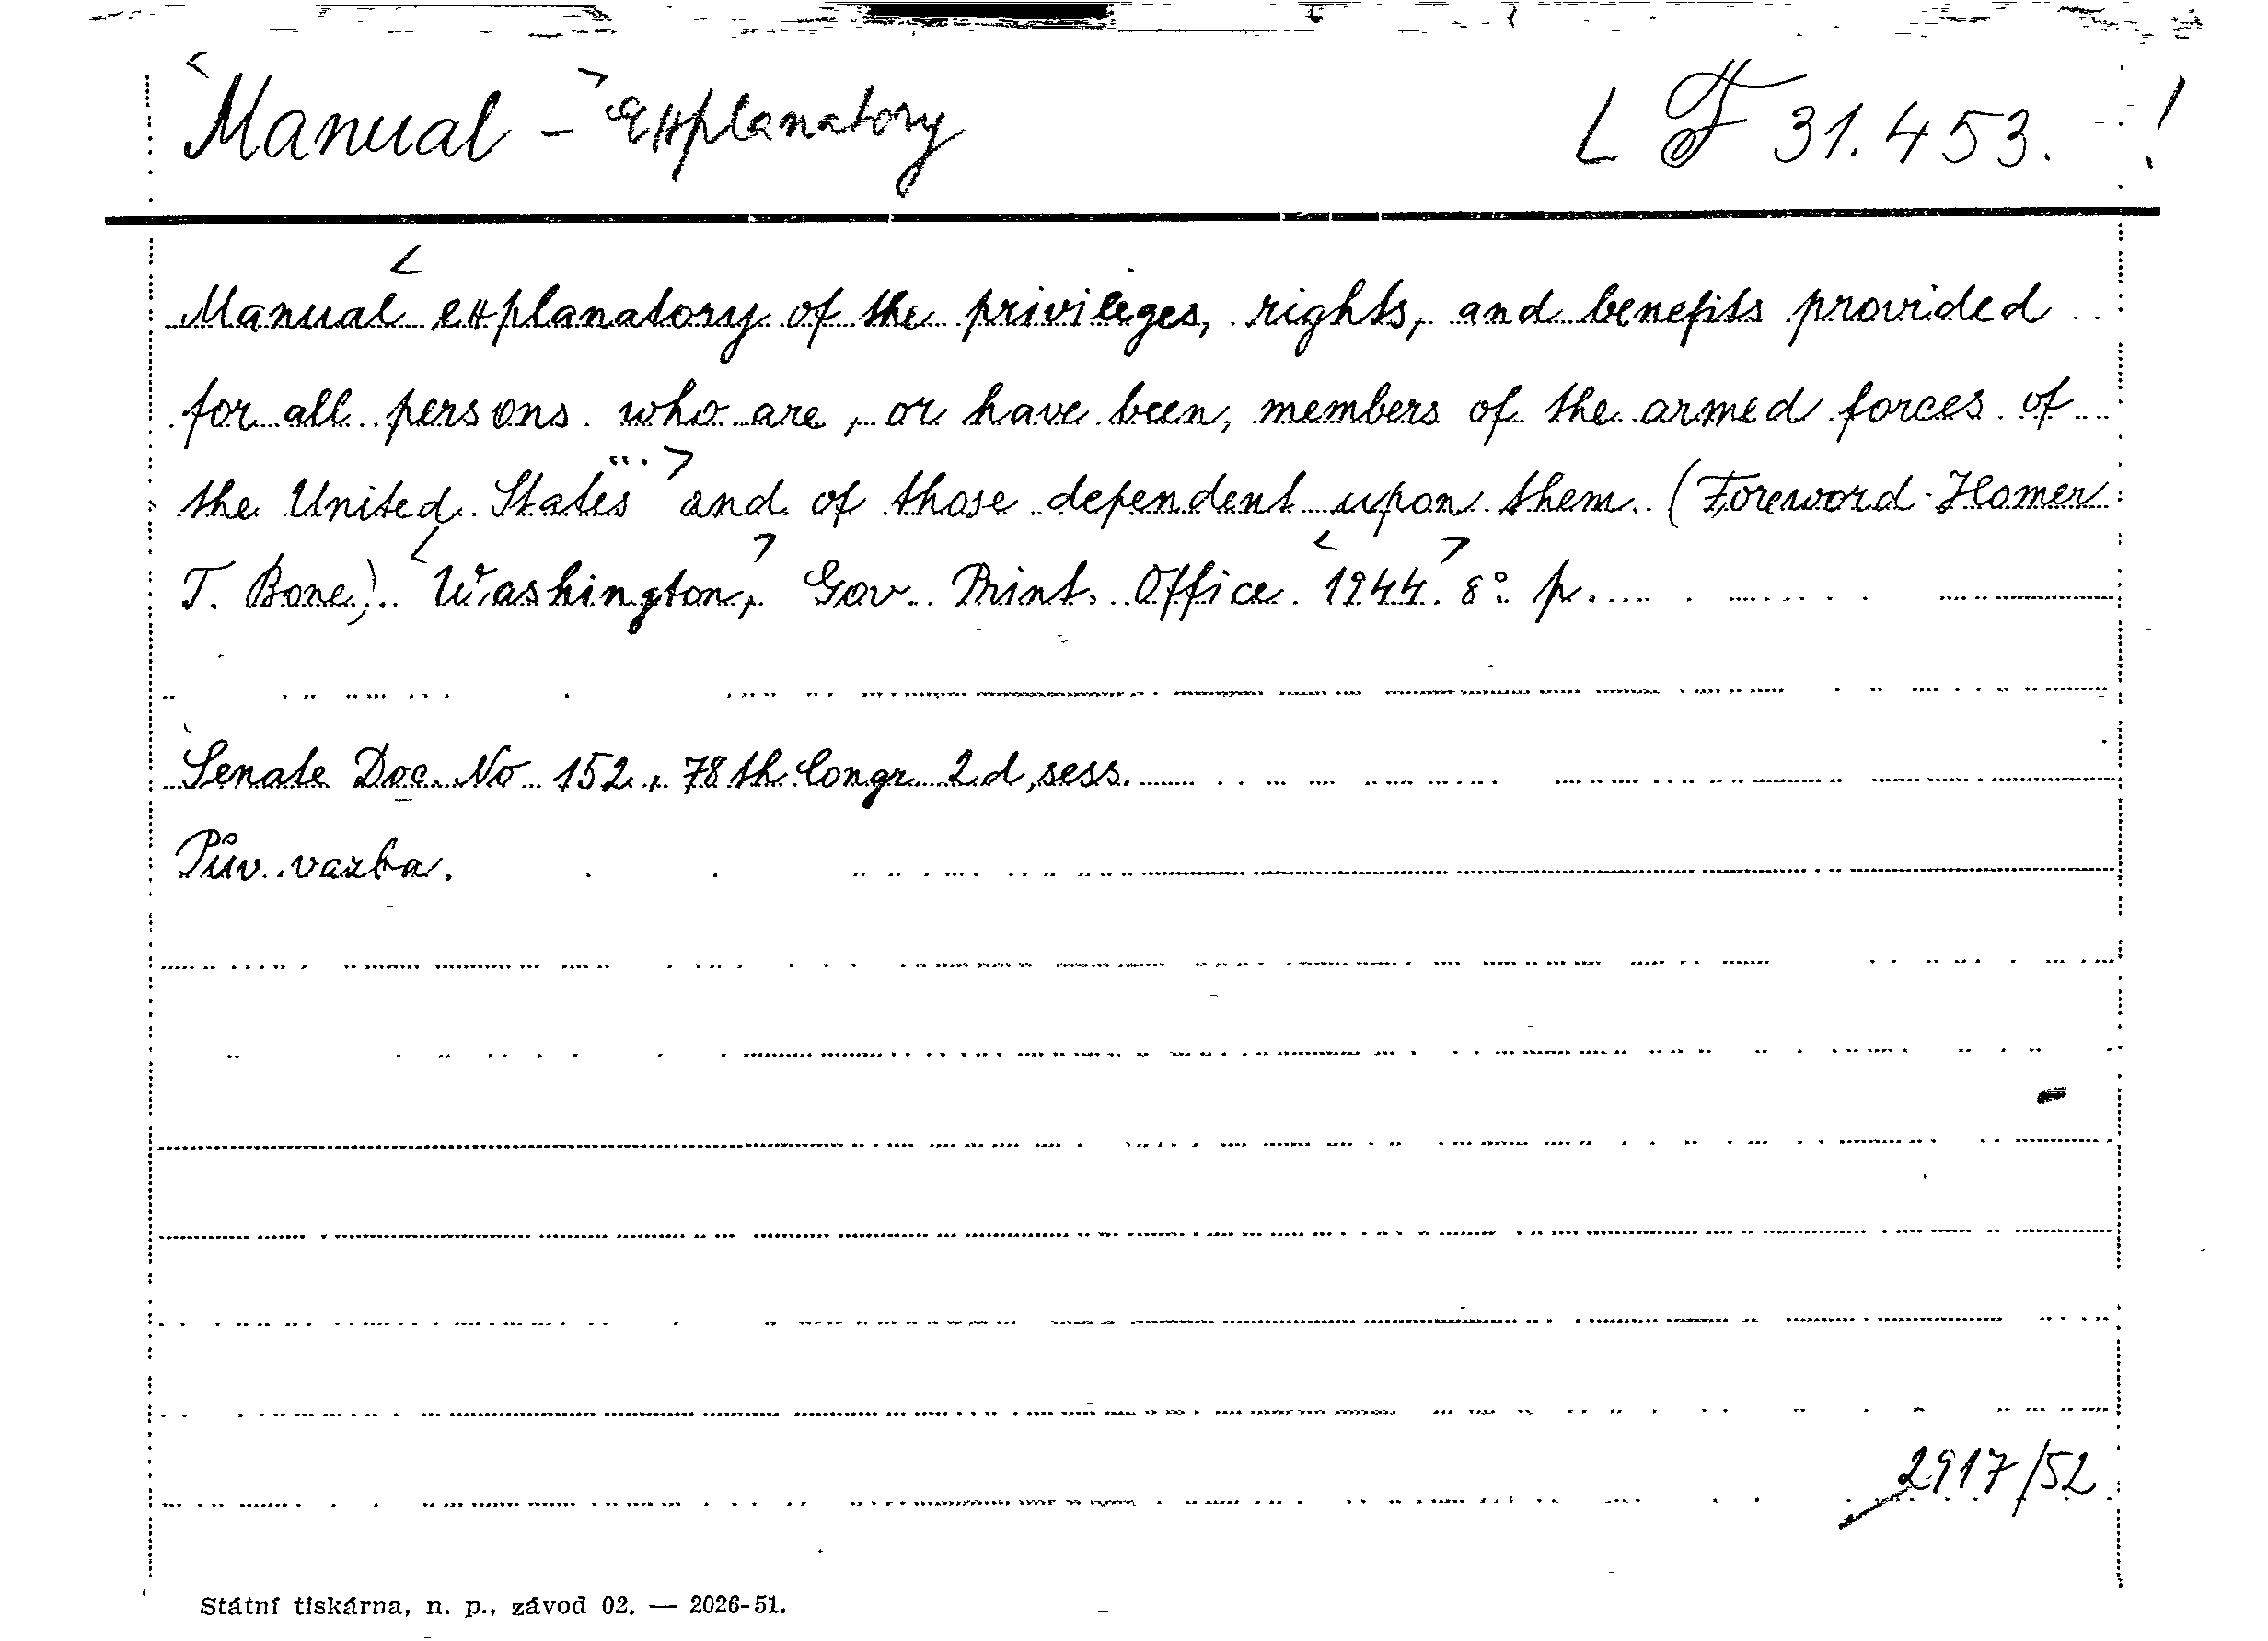 Manual - Explanatory L F 31.453. !
Manual explanatory of the privileges, rights, and benefits provided
for all persons who are, or have been, members of the armed forces of
the United States and of those dependent upon them. (Foreword Homer
T. Bone). Washington, Gov. Print. Office 1944. 8° p.
Senate Doc. No 152, 78th Congr. 2d, sess.
Pův. vazba.
2917/52
Státní tiskárna, n. p., závod 02. — 2026-51.